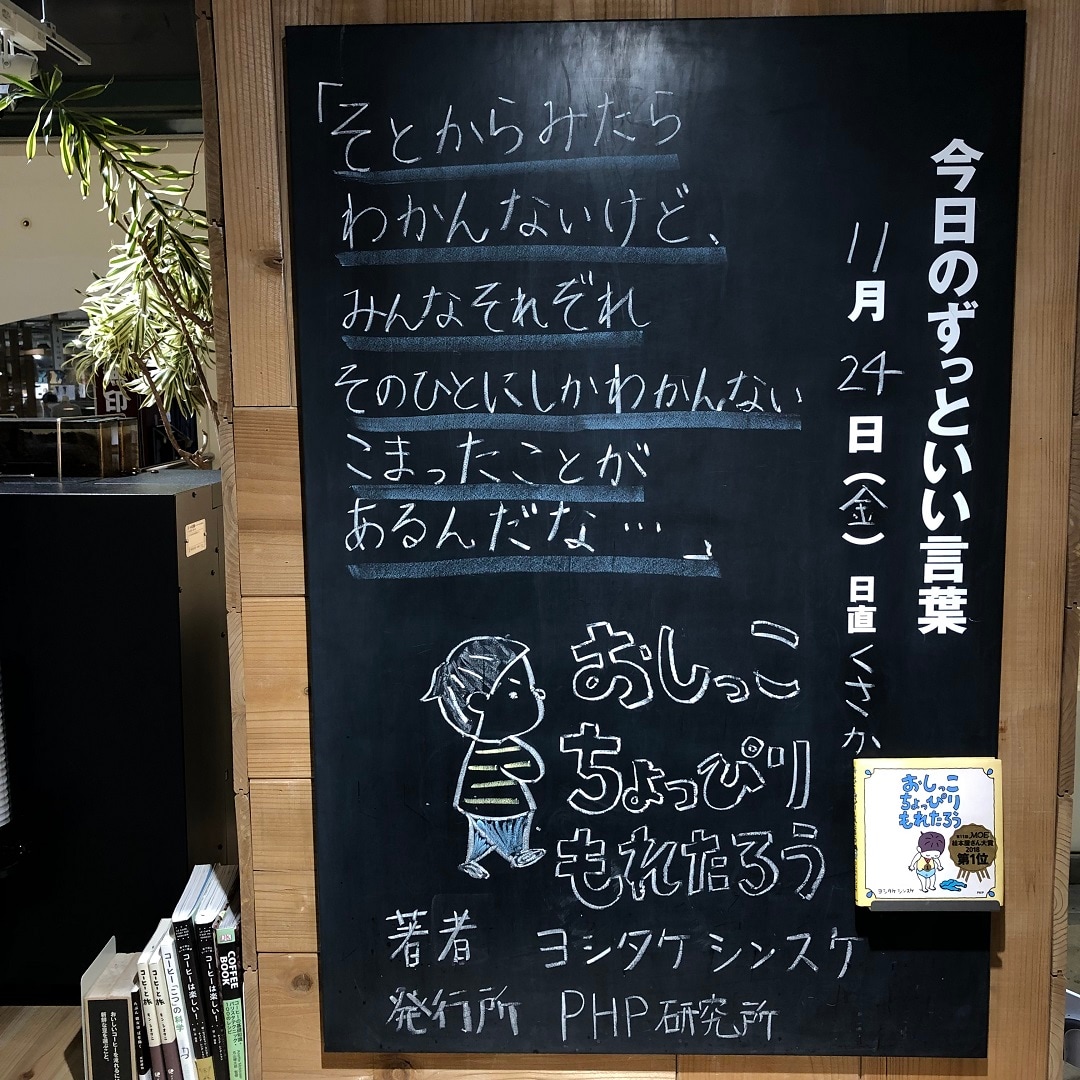 今日のずっといい言葉
11月24日(金) 日直 くさか
「そとからみたら
わかんないけど、
みんなそれぞれ
そのひとにしかわかんない
こまったことが
あるんだな…」
おしっこ
ちょっぴり
もれたろう
著者 ヨシタケシンスケ
発行所 PHP研究所
おしっこ
ちょっぴり
もれたろう
MOE
絵本屋さん大賞
2018
第1位
ヨシタケシンスケ
PHP
おいしいコーヒーを淹れるには
新鮮な豆を選ぶこと。
コーヒーと旅
コーヒーと旅
コーヒー「こつ」の科学
コーヒーは楽しい!
コーヒーは楽しい!
COFFEE
BOOK